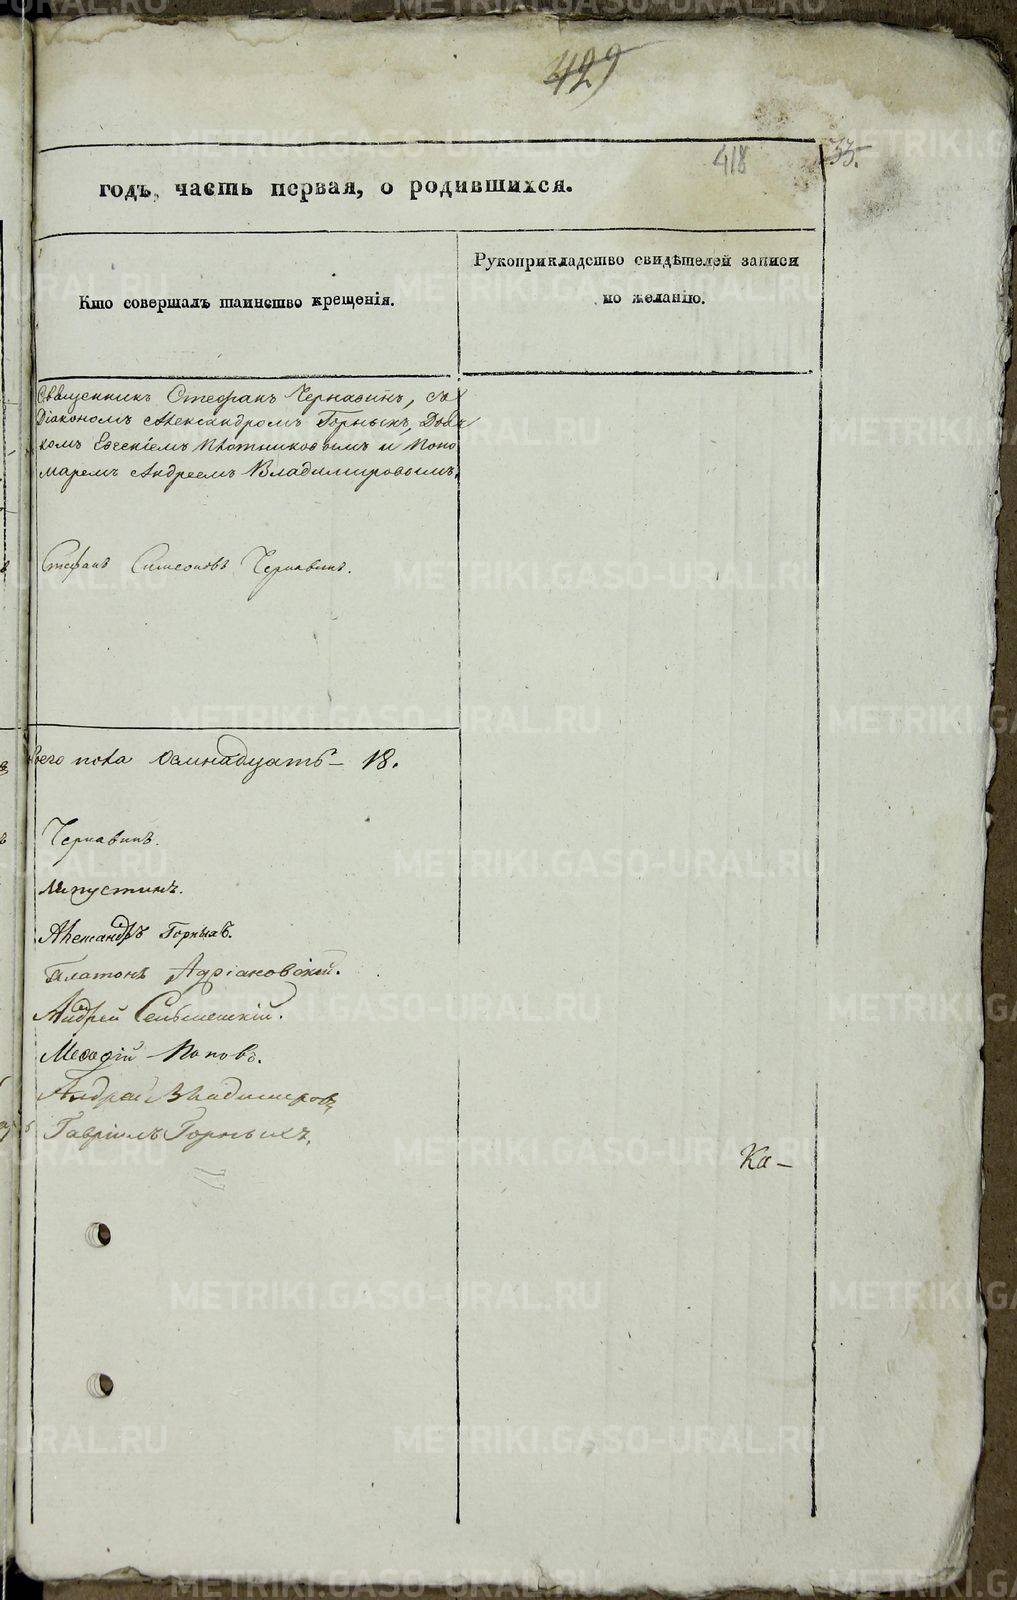 429
418
33.
годъ, часть первая, о родившихся.
Кто совершалъ таинство крещенія.
Рукоприкладство свидѣтелей записи
по желанію.
Священникъ Стефанъ Чернавинъ, съ
Діакономъ Александромъ Горныхъ, Дьяч
комъ Евгеніемъ Плотниковымъ и Поно
маремъ Андреемъ Владимировымъ.
Стефанъ Симеоновъ Чернавинъ.
пола Осмнадцать – 18.
Чернавинъ.
Лапустинъ.
Александръ Горныхъ.
Платонъ Адріановскій.
Андрей Сельменскій.
Меѳодій Поповъ.
Андрей Владимировъ
Гавріилъ Горныхъ.
Ка –
METRIKI.GASO-URAL.RU